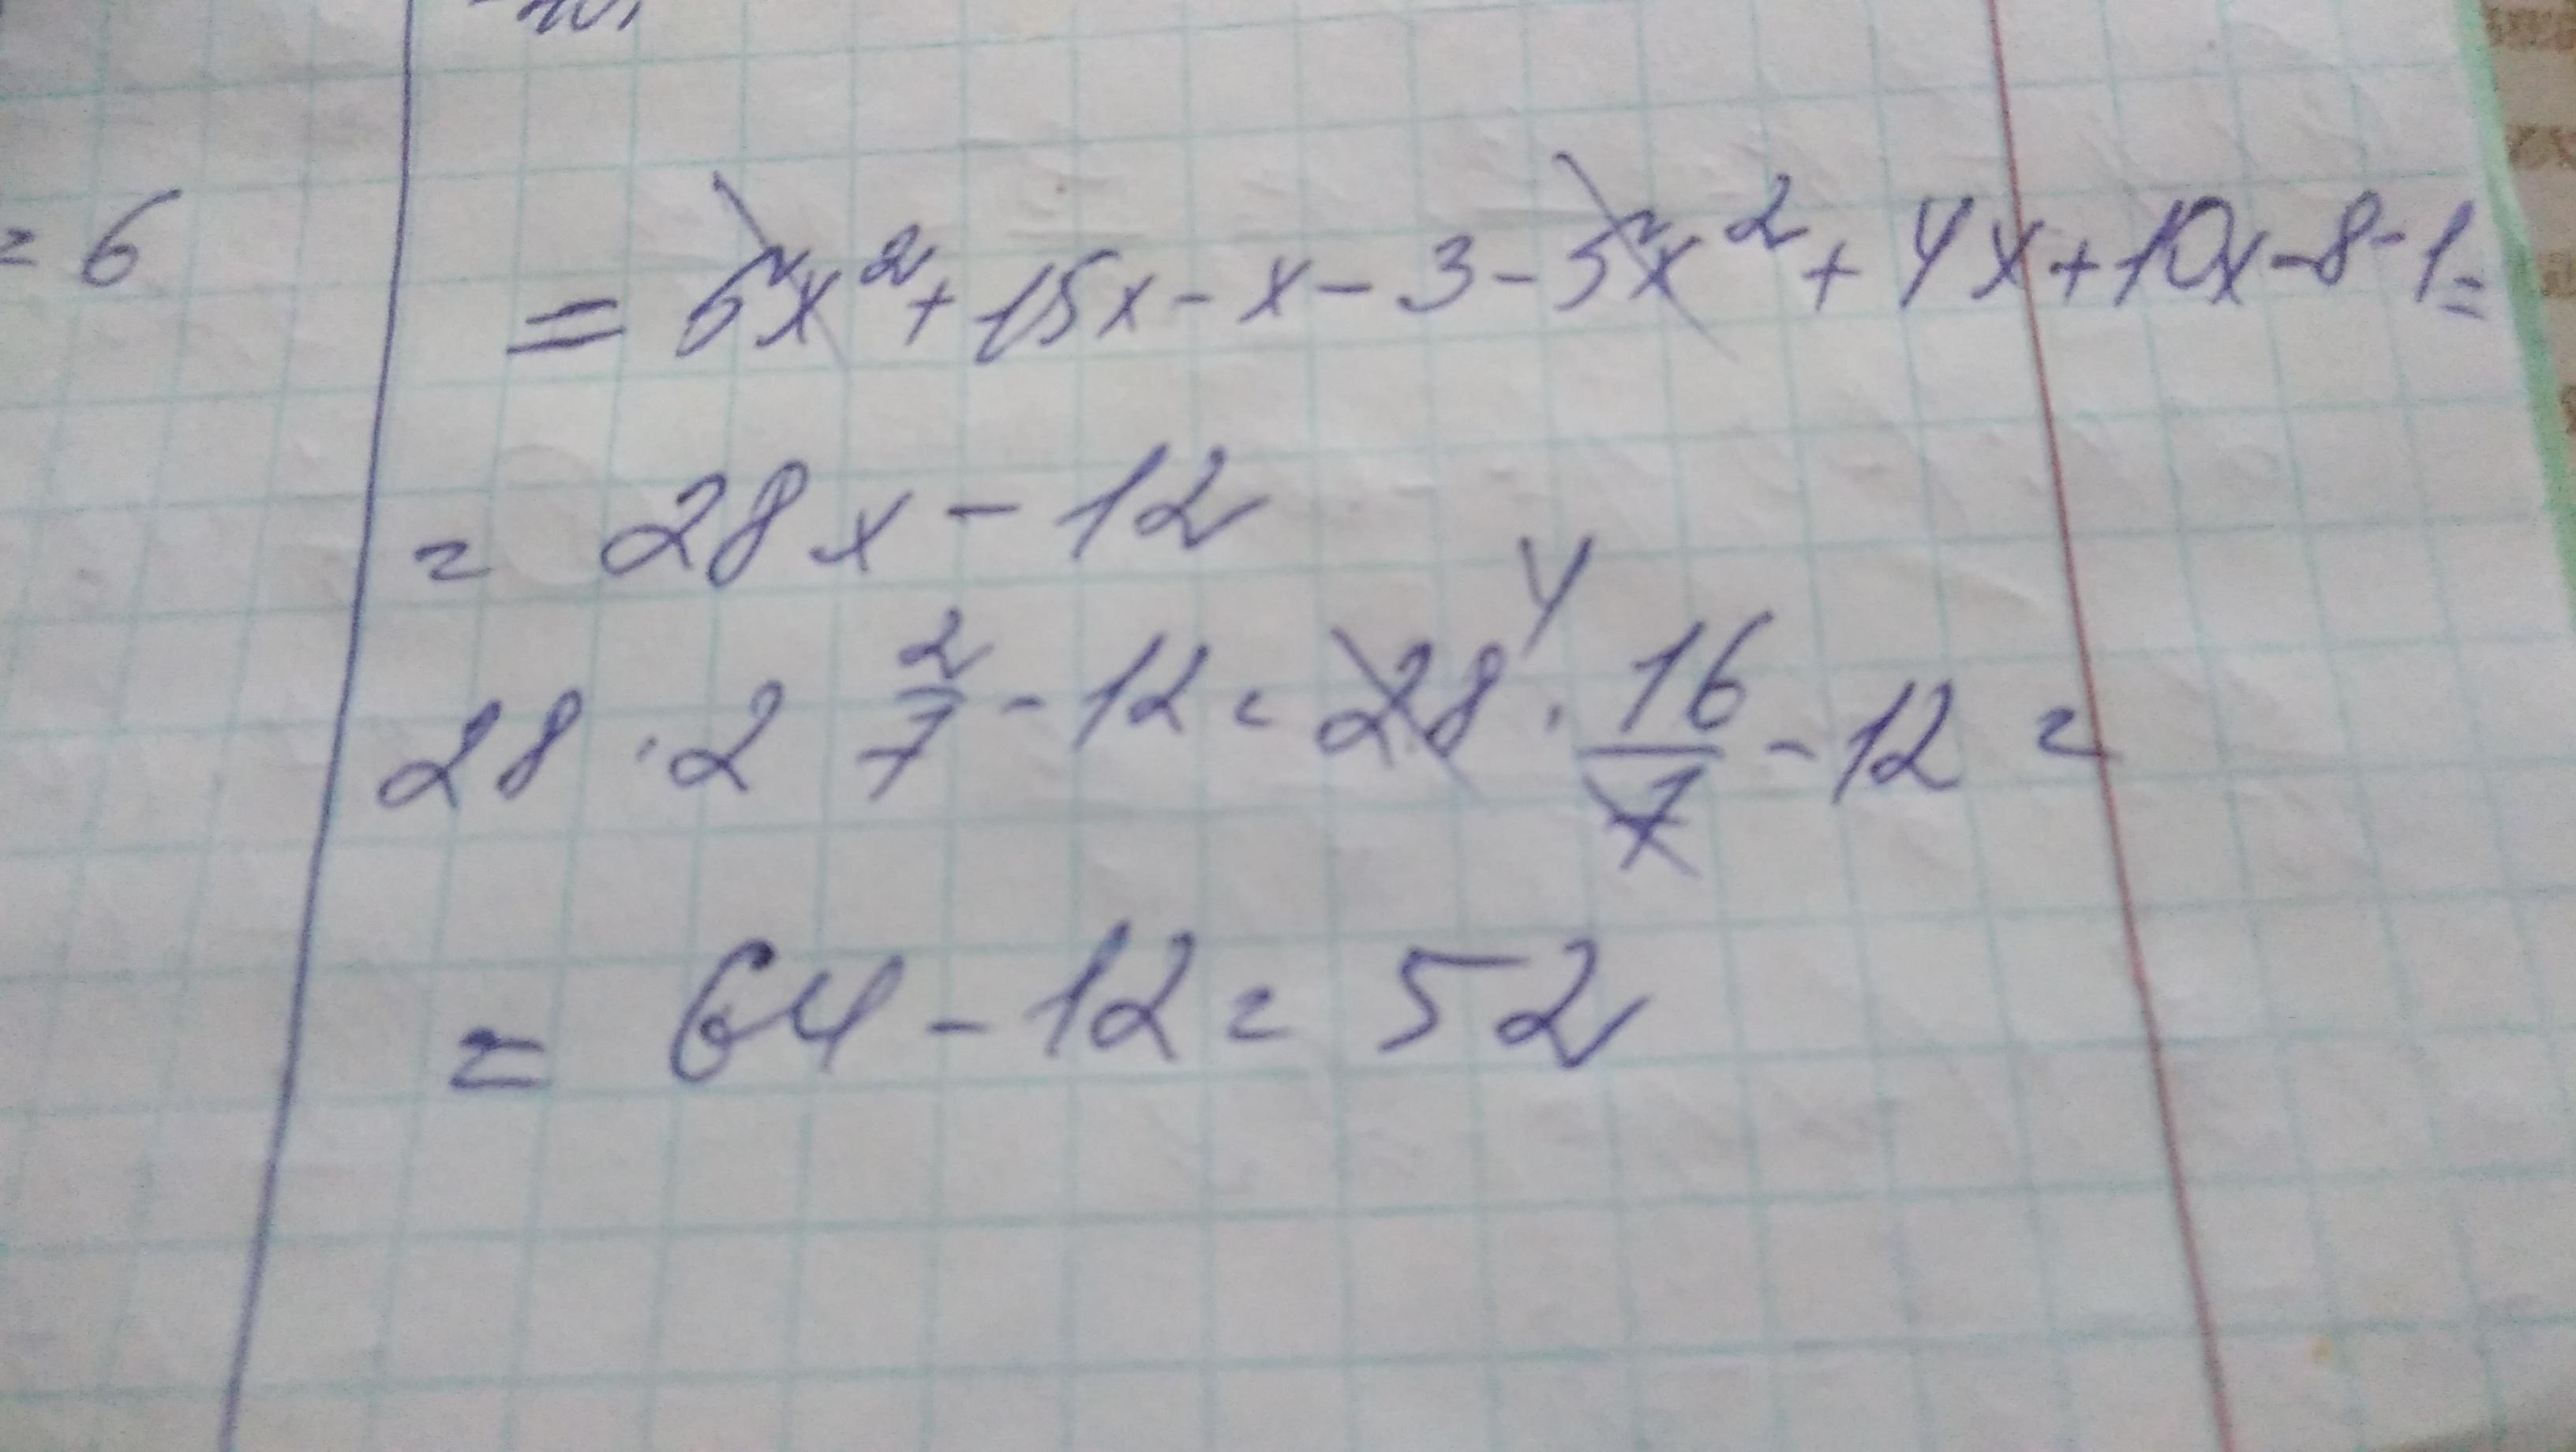 = 6
= 5x² + 15x - x - 3 - 5x² + 4x + 10x - 8 - 1 =
= 28x - 12
28 · 2 2/7 - 12 = 28 4 · 16/7 - 12 =
= 64 - 12 = 52